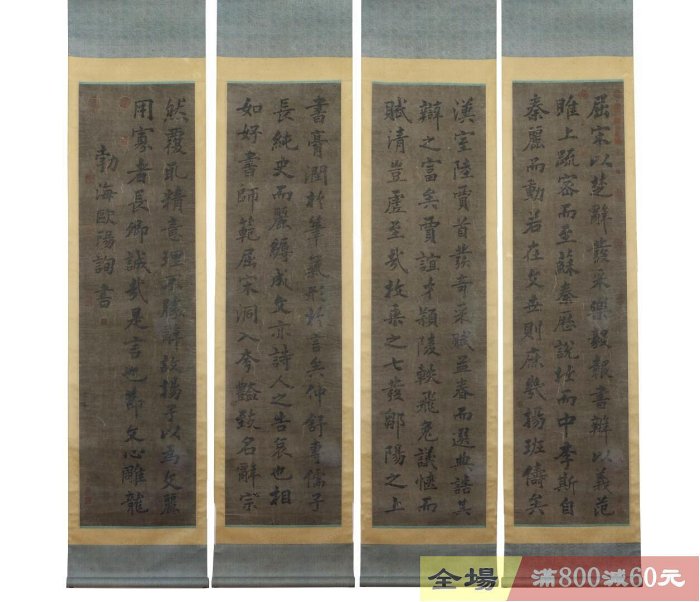 屈宋以楚辭發采樂毅報書辯以義范
雎上疏密而至蘇秦歷說壯而中李斯自
秦麗而動若在文世則庶幾揚班儔矣
漢室陸賈首發奇采賦孟春而選典誥其
辯之富矣賈誼才穎陵軼飛兔議愜而
賦清豈虛至哉枚乘之七發鄒陽之上
書膏潤於筆氣形於言矣仲舒專儒子
長純史而麗縟成文亦詩人之告哀也相
如好書師範屈宋洞入夸豔致名辭宗
然覆取精意理不勝辭故揚子以為文麗
用寡者長卿誠哉是言也節文心雕龍
勃海歐陽詢書
全場
滿800減60元